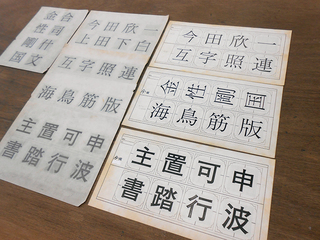 金合
性
剛仕
国文
今田欣一
上田下白
互字照連
海鳥筋版
主置可申
書踏行波
今田欣一
互字照連
金性剛国
海鳥筋版
主置可申
書踏行波